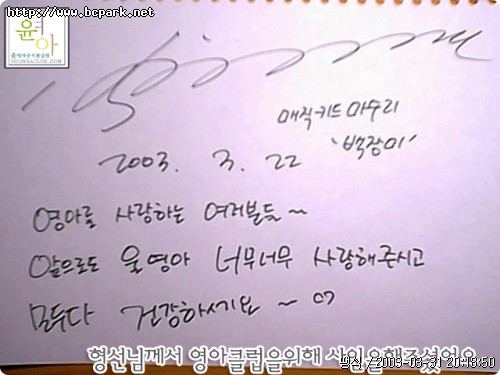 http://www.bcpark.net
윤영아
YOUNGACLUB.COM
매직키드 마수리
'백장미'
2003. 3. 22
영아를 사랑하는 여러분들~
앞으로도 울영아 너무너무 사랑해주시고
모두다 건강하세요~
형선님께서 영아클럽을위해 사인을해주셨어요